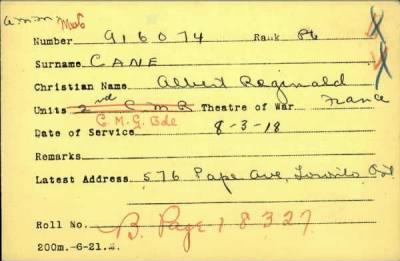 Number 916074 Rank Pte
Surname CANE
Christian Name Albert Reginald
Units 2nd C.M.R. Theatre of War France
C.M.G. Bde
Date of Service 8-3-18
Remarks
Latest Address 576 Pape Ave, Toronto Ont
Roll No. B. Page 18327
200m.-6-21.